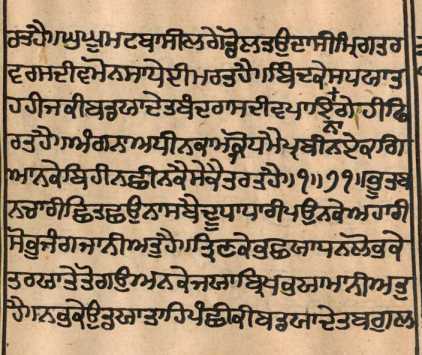 ਰਤਹੈ॥ਘੁਘੂਮਟਬਾਸੀਲਗੇਡੋਲਤਉਦਾਸੀਮ੍ਰਿਗਤਰ
ਵਰਸਦੀਵਮੋਨਸਾਧੇਈਮਰਤਹੈ॥ਬਿੰਦਕੇਸਧਯਾਤ
ਹਹੀਜਕੀਬਡਯਾਦੇਤਬੰਦਰਾਸਦੀਵਪਾਇਨਾਗੇਹੀਫਿ
ਰਤਹੈ॥ਅੰਗਨਾਅਧੀਨਕਾਮਕ੍ਰੋਧਮੈਪ੍ਰਬੀਨਏਕਗਿ
ਆਨਕੇਬਿਹੀਨਛੀਨਕੈਸੇਕੈਤਰਤਹੈ॥੧॥੭੧॥ਭੂਤਬ
ਨਚਾਰੀਛਿਤਛਉਨਾਸਬੈਦੂਧਾਧਾਰੀਪਉਨਕੇਅਹਾਰੀ
ਸੋਭੁਜੰਗਜਾਨੀਅਤੁਹੈ॥ਤ੍ਰਿਣਕੇਭਛਯਾਧਨਲੋਭਕੇ
ਤਰਯਾਤੇਤੋਗਊਅਨਕੇਜਯਾਬ੍ਰਿਖਭਯਾਮਾਨੀਅਤੁ
ਹੈ॥ਨਭਕੇਉਡਯਾਤਾਹਿਪੰਛੀਕੀਬਡਯਾਦੇਤਬਗੁਲ